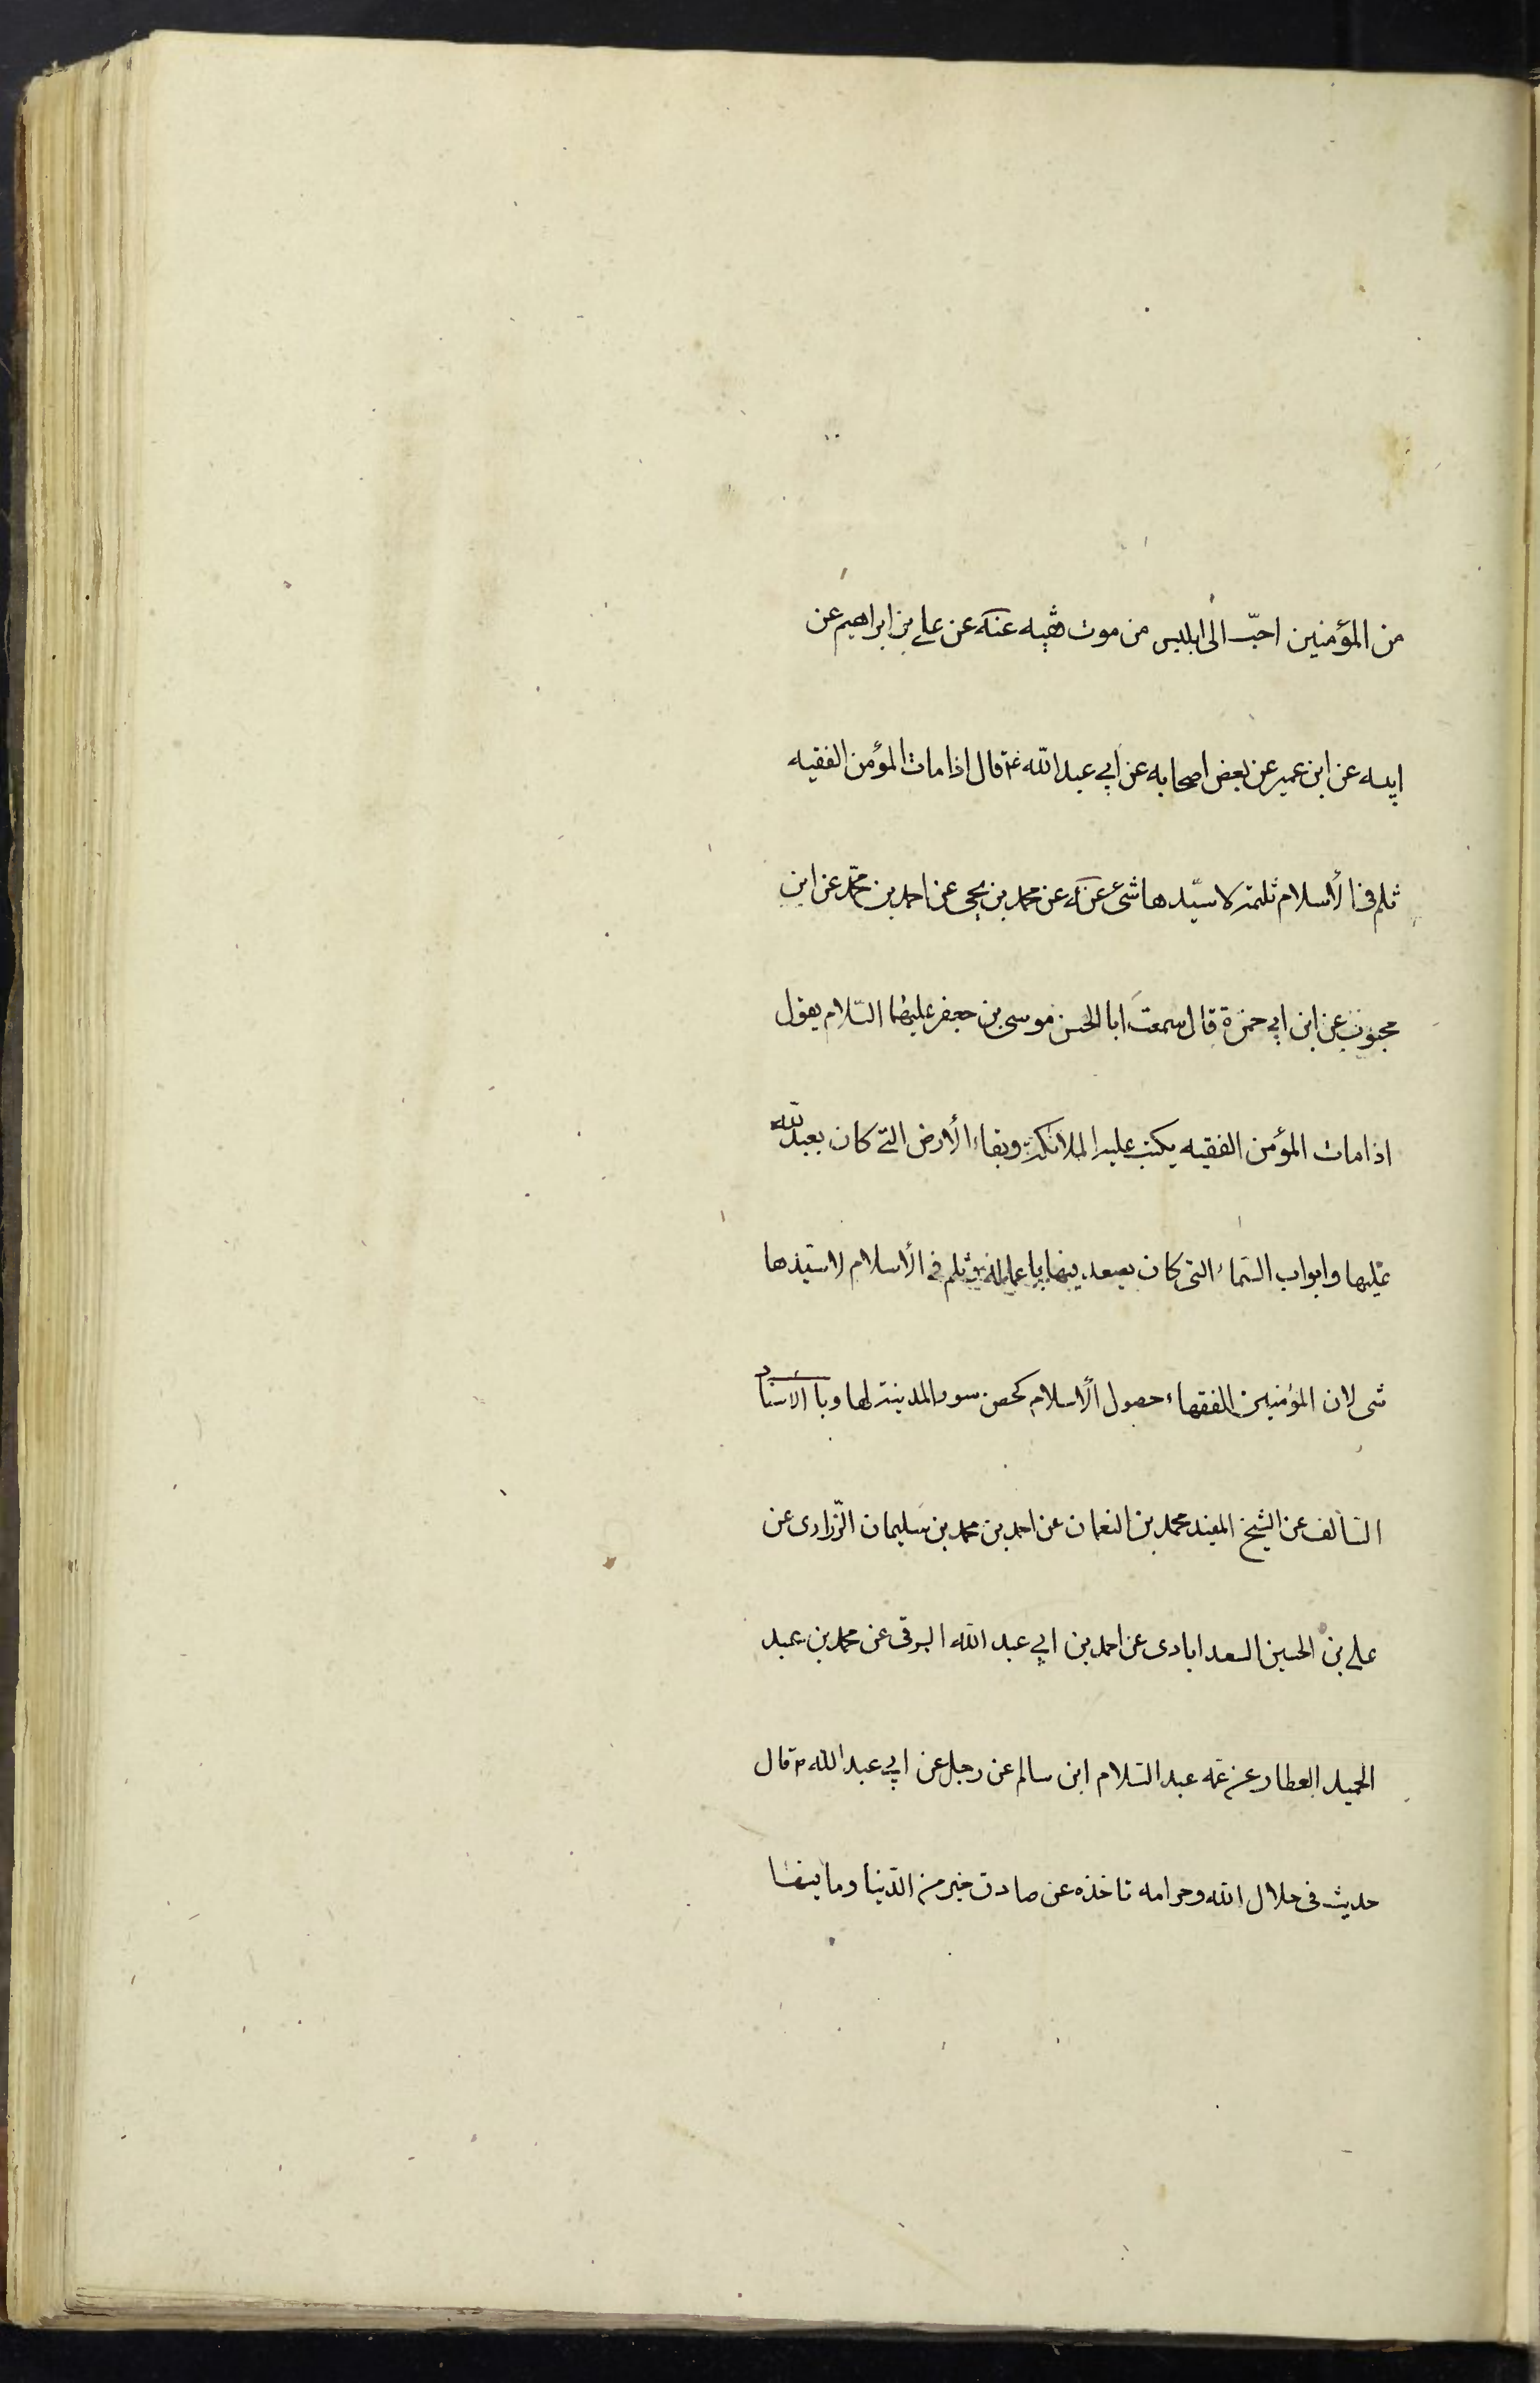 من المؤمنين احبّ الى ابليس من موت فقيه عنه عن علي بن ابراهيم عن
ابيه عن ابن عمير عن بعض اصحابه عن ابي عبد الله ع قال اذا مات المؤمن الفقيه
ثلم في الأسلام ثلمة لا سيّدها شئ عنه عن محمد بن يحيى عن احمد بن محمّد عن ابن
محبوب عن ابن ابي حمزة قال سمعت ابا الحسن موسى بن جعفر عليهما السّلام يقول
اذا مات المؤمن الفقيه يكت عليه الملائكة وبقاء الأرض التي كان يعبد الله
عليها وابواب السّماء التى كان يصعد فيها باعماله ثلم في الأسلام لا ستيدها
شى لان المؤمنين الفقهاء حصول الأسلام كحصن سور المدينة لها وبالأسناد
السّالف عن الشيخ المفيد محمد بن النعمان عن احمد بن محمد بن سليمان الزّرارى عن
على بن الحسين السعدابادى عن احمد بن ابي عبد الله البرقى عن محمد بن عبد
الحميد العطار عن عمه عبد السّلام ابن سالم عن رجل عن ابي عبد الله ع قال
حديث فى حلال الله وحرامه تاخذه عن صادق خير من الدّنيا وما فيها